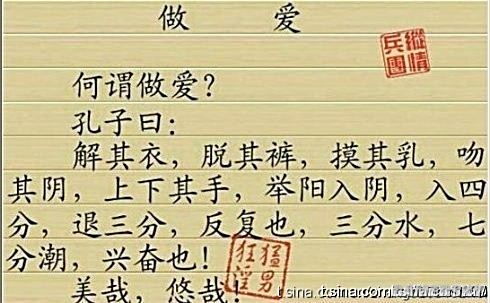 做 爱
縱情
兵團
何谓做爱？
孔子曰：
解其衣，脱其裤，摸其乳，吻
其阴，上下其手，举阳入阴，入四
分，退三分，反复也，三分水，七
分潮，兴奋也！
美哉，悠哉！
猛男
狂淫